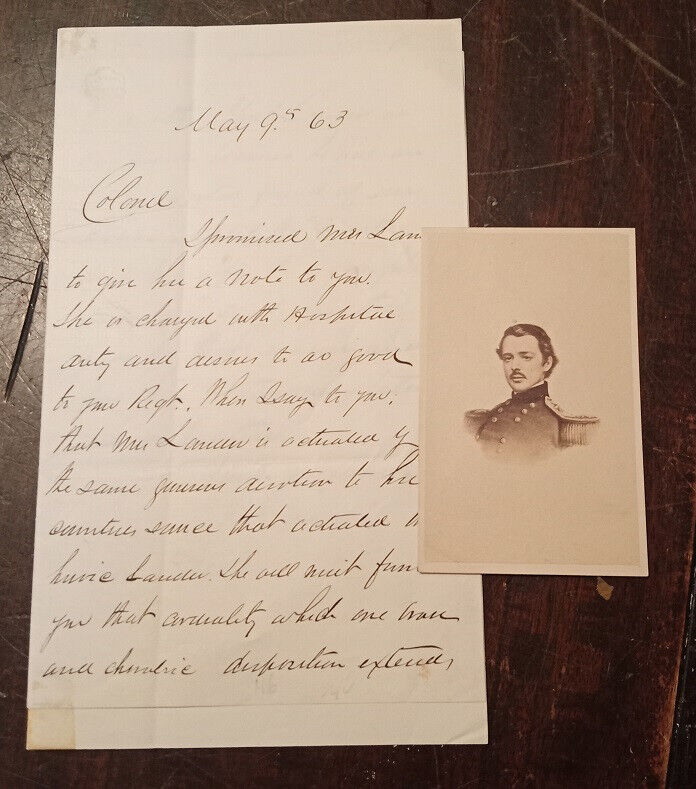 May 9th 63
Colonel
I promised Mrs Lan
to give her a note to you.
She is charged with Hospital
duty and desires to do good
to your Regt. When I say to you,
that Mrs Lander is actuated by
the same generous devotion to her
countries sauce that actuated
heroic Lander. She will meet from
you that cordiality which one brave
and chivalric disposition extends